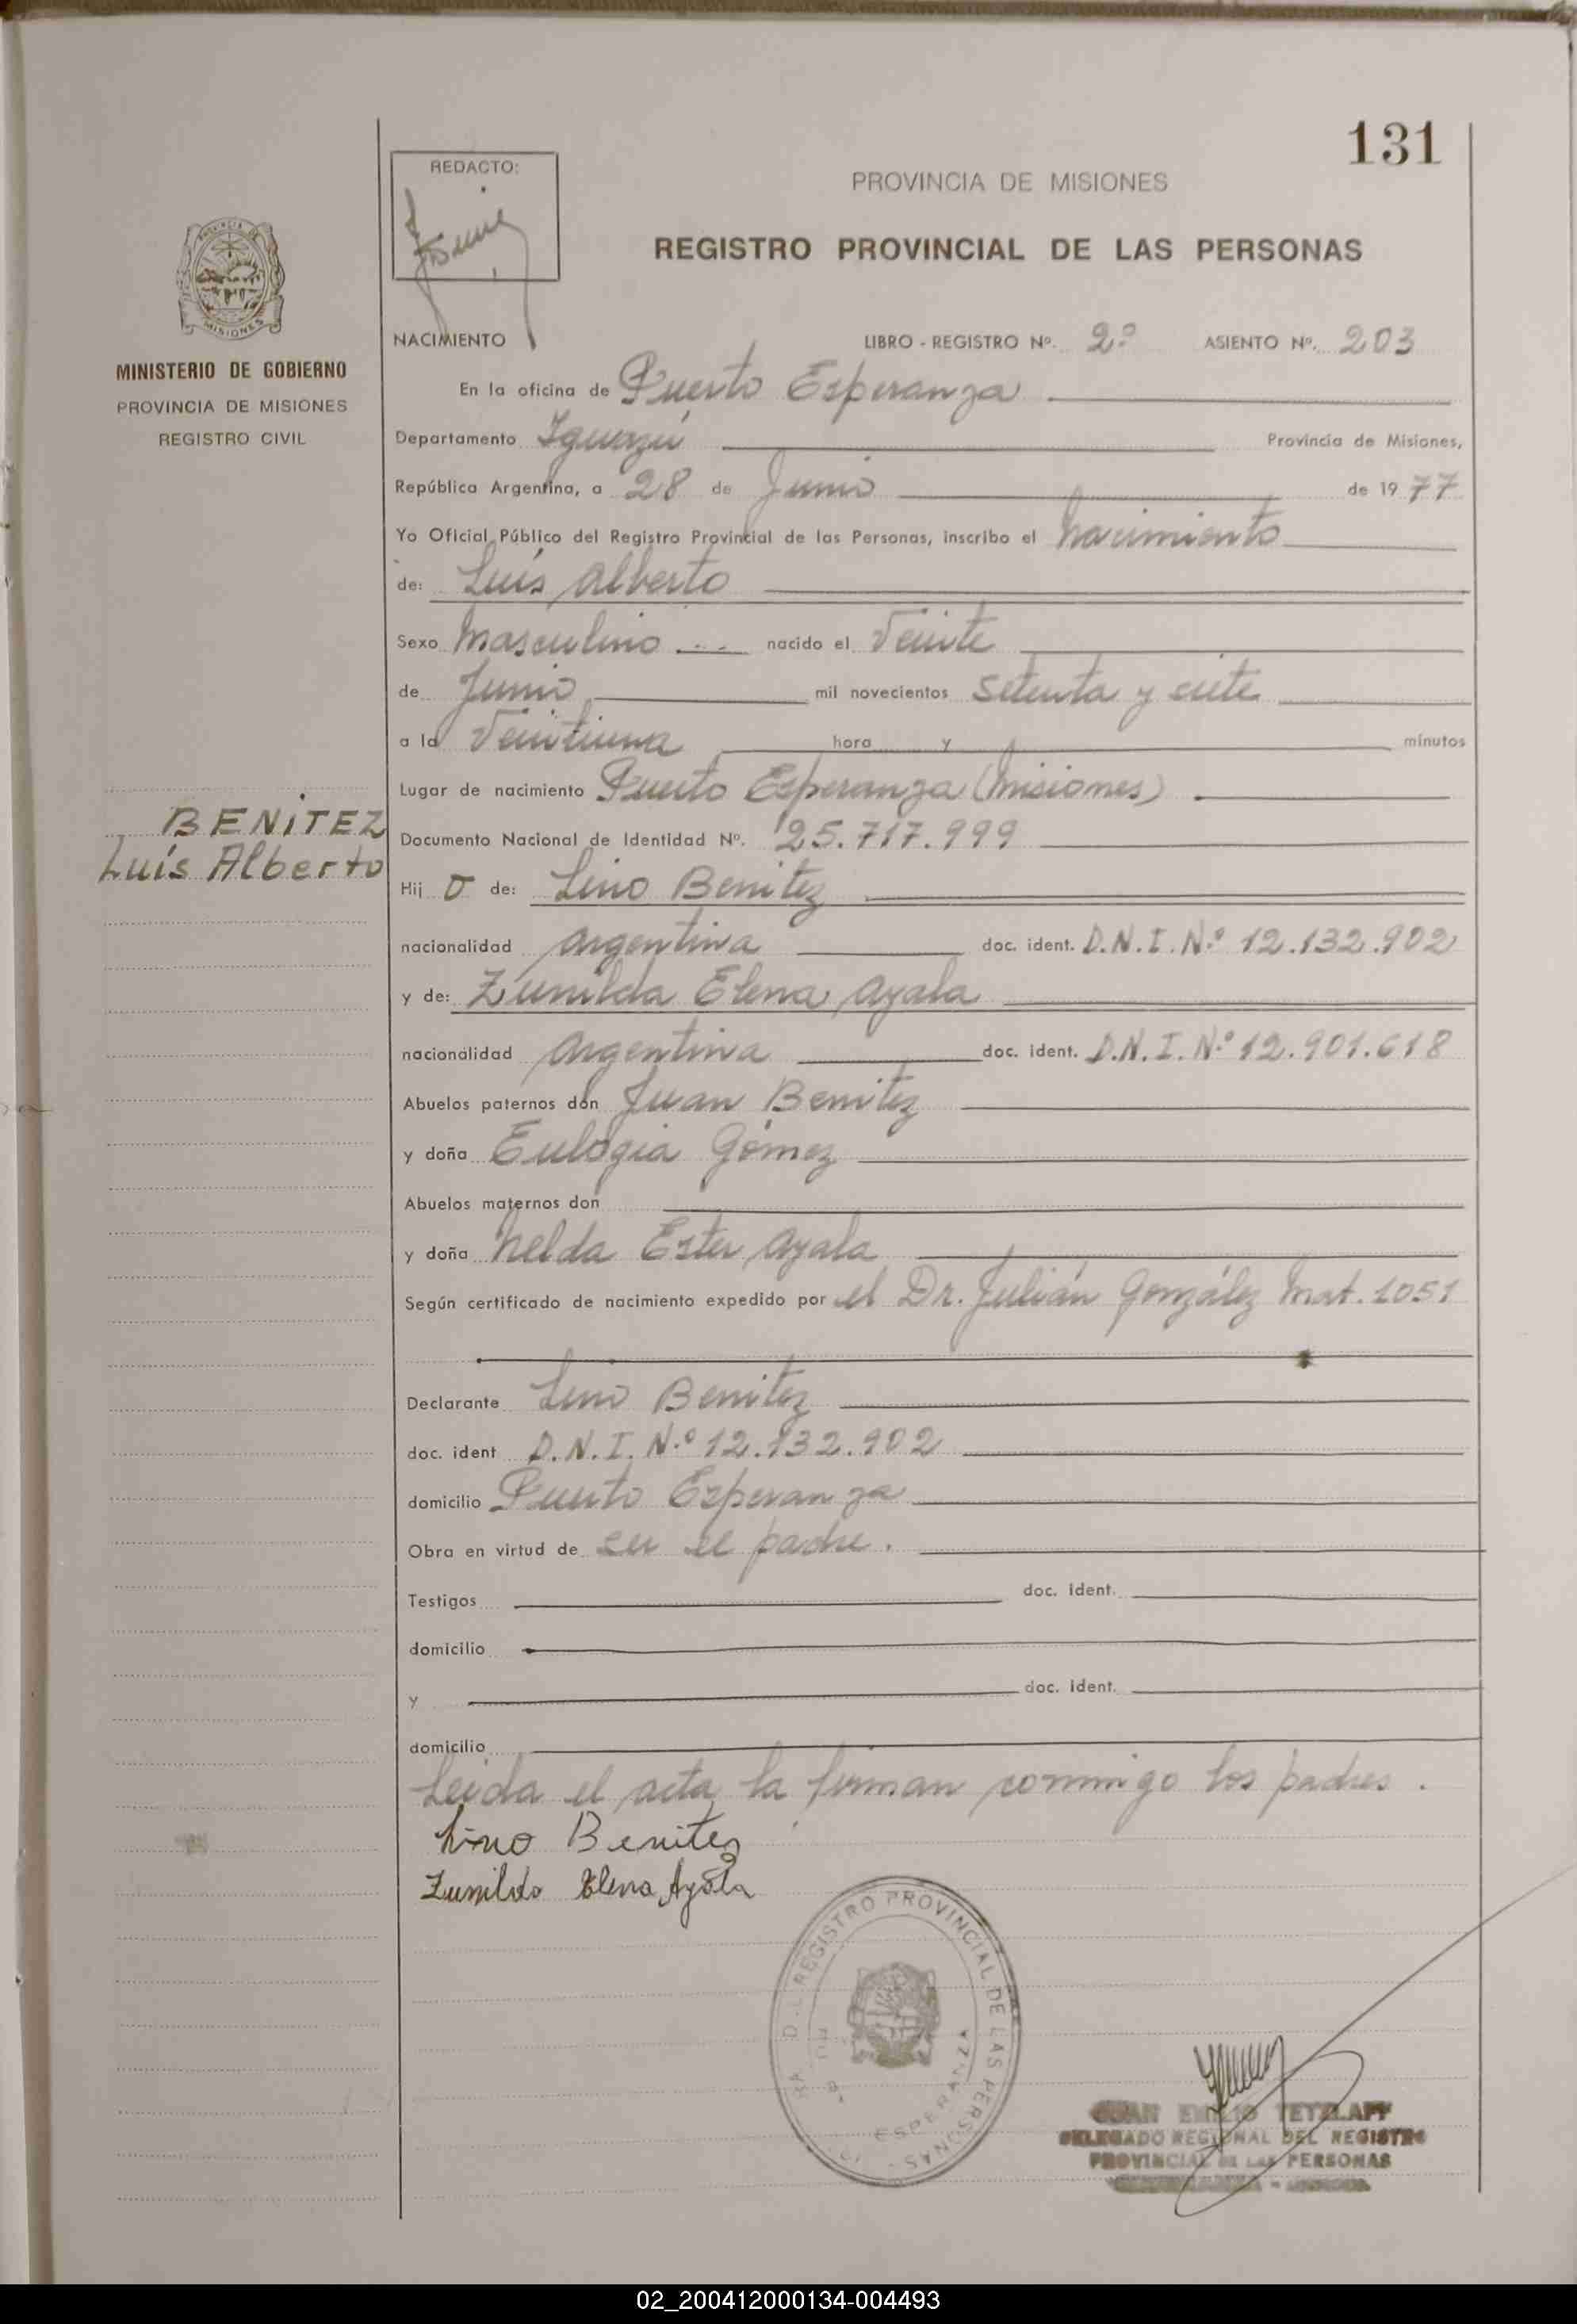 131
REDACTO:
PROVINCIA DE MISIONES
REGISTRO PROVINCIAL DE LAS PERSONAS
MISIONES
MINISTERIO DE GOBIERNO
PROVINCIA DE MISIONES
REGISTRO CIVIL
NACIMIENTO LIBRO - REGISTRO Nº. 2º ASIENTO Nº. 203
En la oficina de Puerto Esperanza
Departamento Iguazú Provincia de Misiones,
República Argentina, a 28 de Junio de 1977
Yo Oficial Público del Registro Provincial de las Personas, inscribo el nacimiento
de: Luis Alberto
Sexo Masculino nacido el Veinte
de Junio mil novecientos setenta y siete
a la Veintiuna hora y minutos
Lugar de nacimiento Puerto Esperanza (Misiones)
BENITEZ
Luís Alberto
Documento Nacional de Identidad Nº. 25.717.999
Hijo de: Lino Benitez
nacionalidad argentina doc. ident. D.N.I. Nº 12.132.902
y de: Zunilda Elena Ayala
nacionalidad argentina doc. ident. D.N.I. Nº 12.901.618
Abuelos paternos don Juan Benitez
y doña Eulogia Gómez
Abuelos maternos don
y doña Nelda Ester Ayala
Según certificado de nacimiento expedido por el Dr. Julián González Mat. 1051
Declarante Lino Benitez
doc. ident D.N.I. Nº 12.132.902
domicilio Puerto Esperanza
Obra en virtud de ser el padre.
Testigos doc. ident.
domicilio
y doc. ident.
domicilio
Leida el acta, la firman conmigo los padres.
Lino Benitez
Zunilda Elena Ayala
REGISTRO PROVINCIAL DE LAS PERSONAS
ESPERANZA
JUAN EMILIO TETZLAFF
DELEGADO REGIONAL DEL REGISTRO
PROVINCIAL DE LAS PERSONAS
02_200412000134-004493